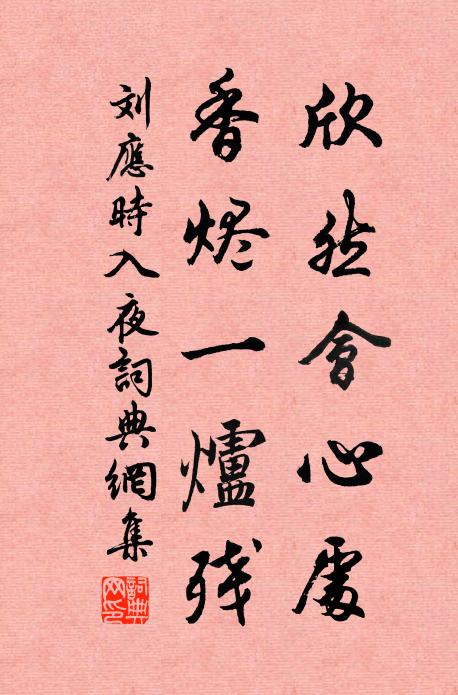 欣然會心處
香烬一爐残
刘應時入夜詞典網集
詞典
网印